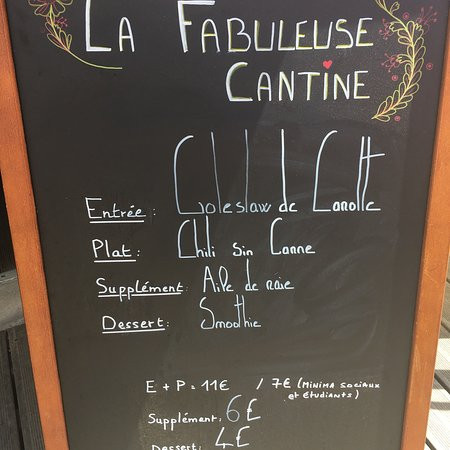 LA FABULEUSE
CANTINE
Entrée : Coleslaw de Carotte
Plat : Chili Sin Carne
Supplément : Aile de raie
Dessert : Smoothie
E + P = 11€ / 7€ (MINIMA SOCIAUX
et ETUDIANTS)
Supplément : 6€
Dessert : 4€